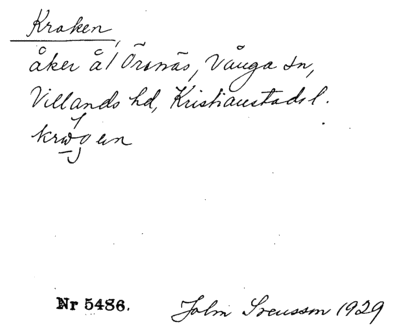 Kroken,
åker å 1 Örsnäs, Vånga sn,
Villands hd, Kristianstads l.
Nr 5486. John Svensson 1929